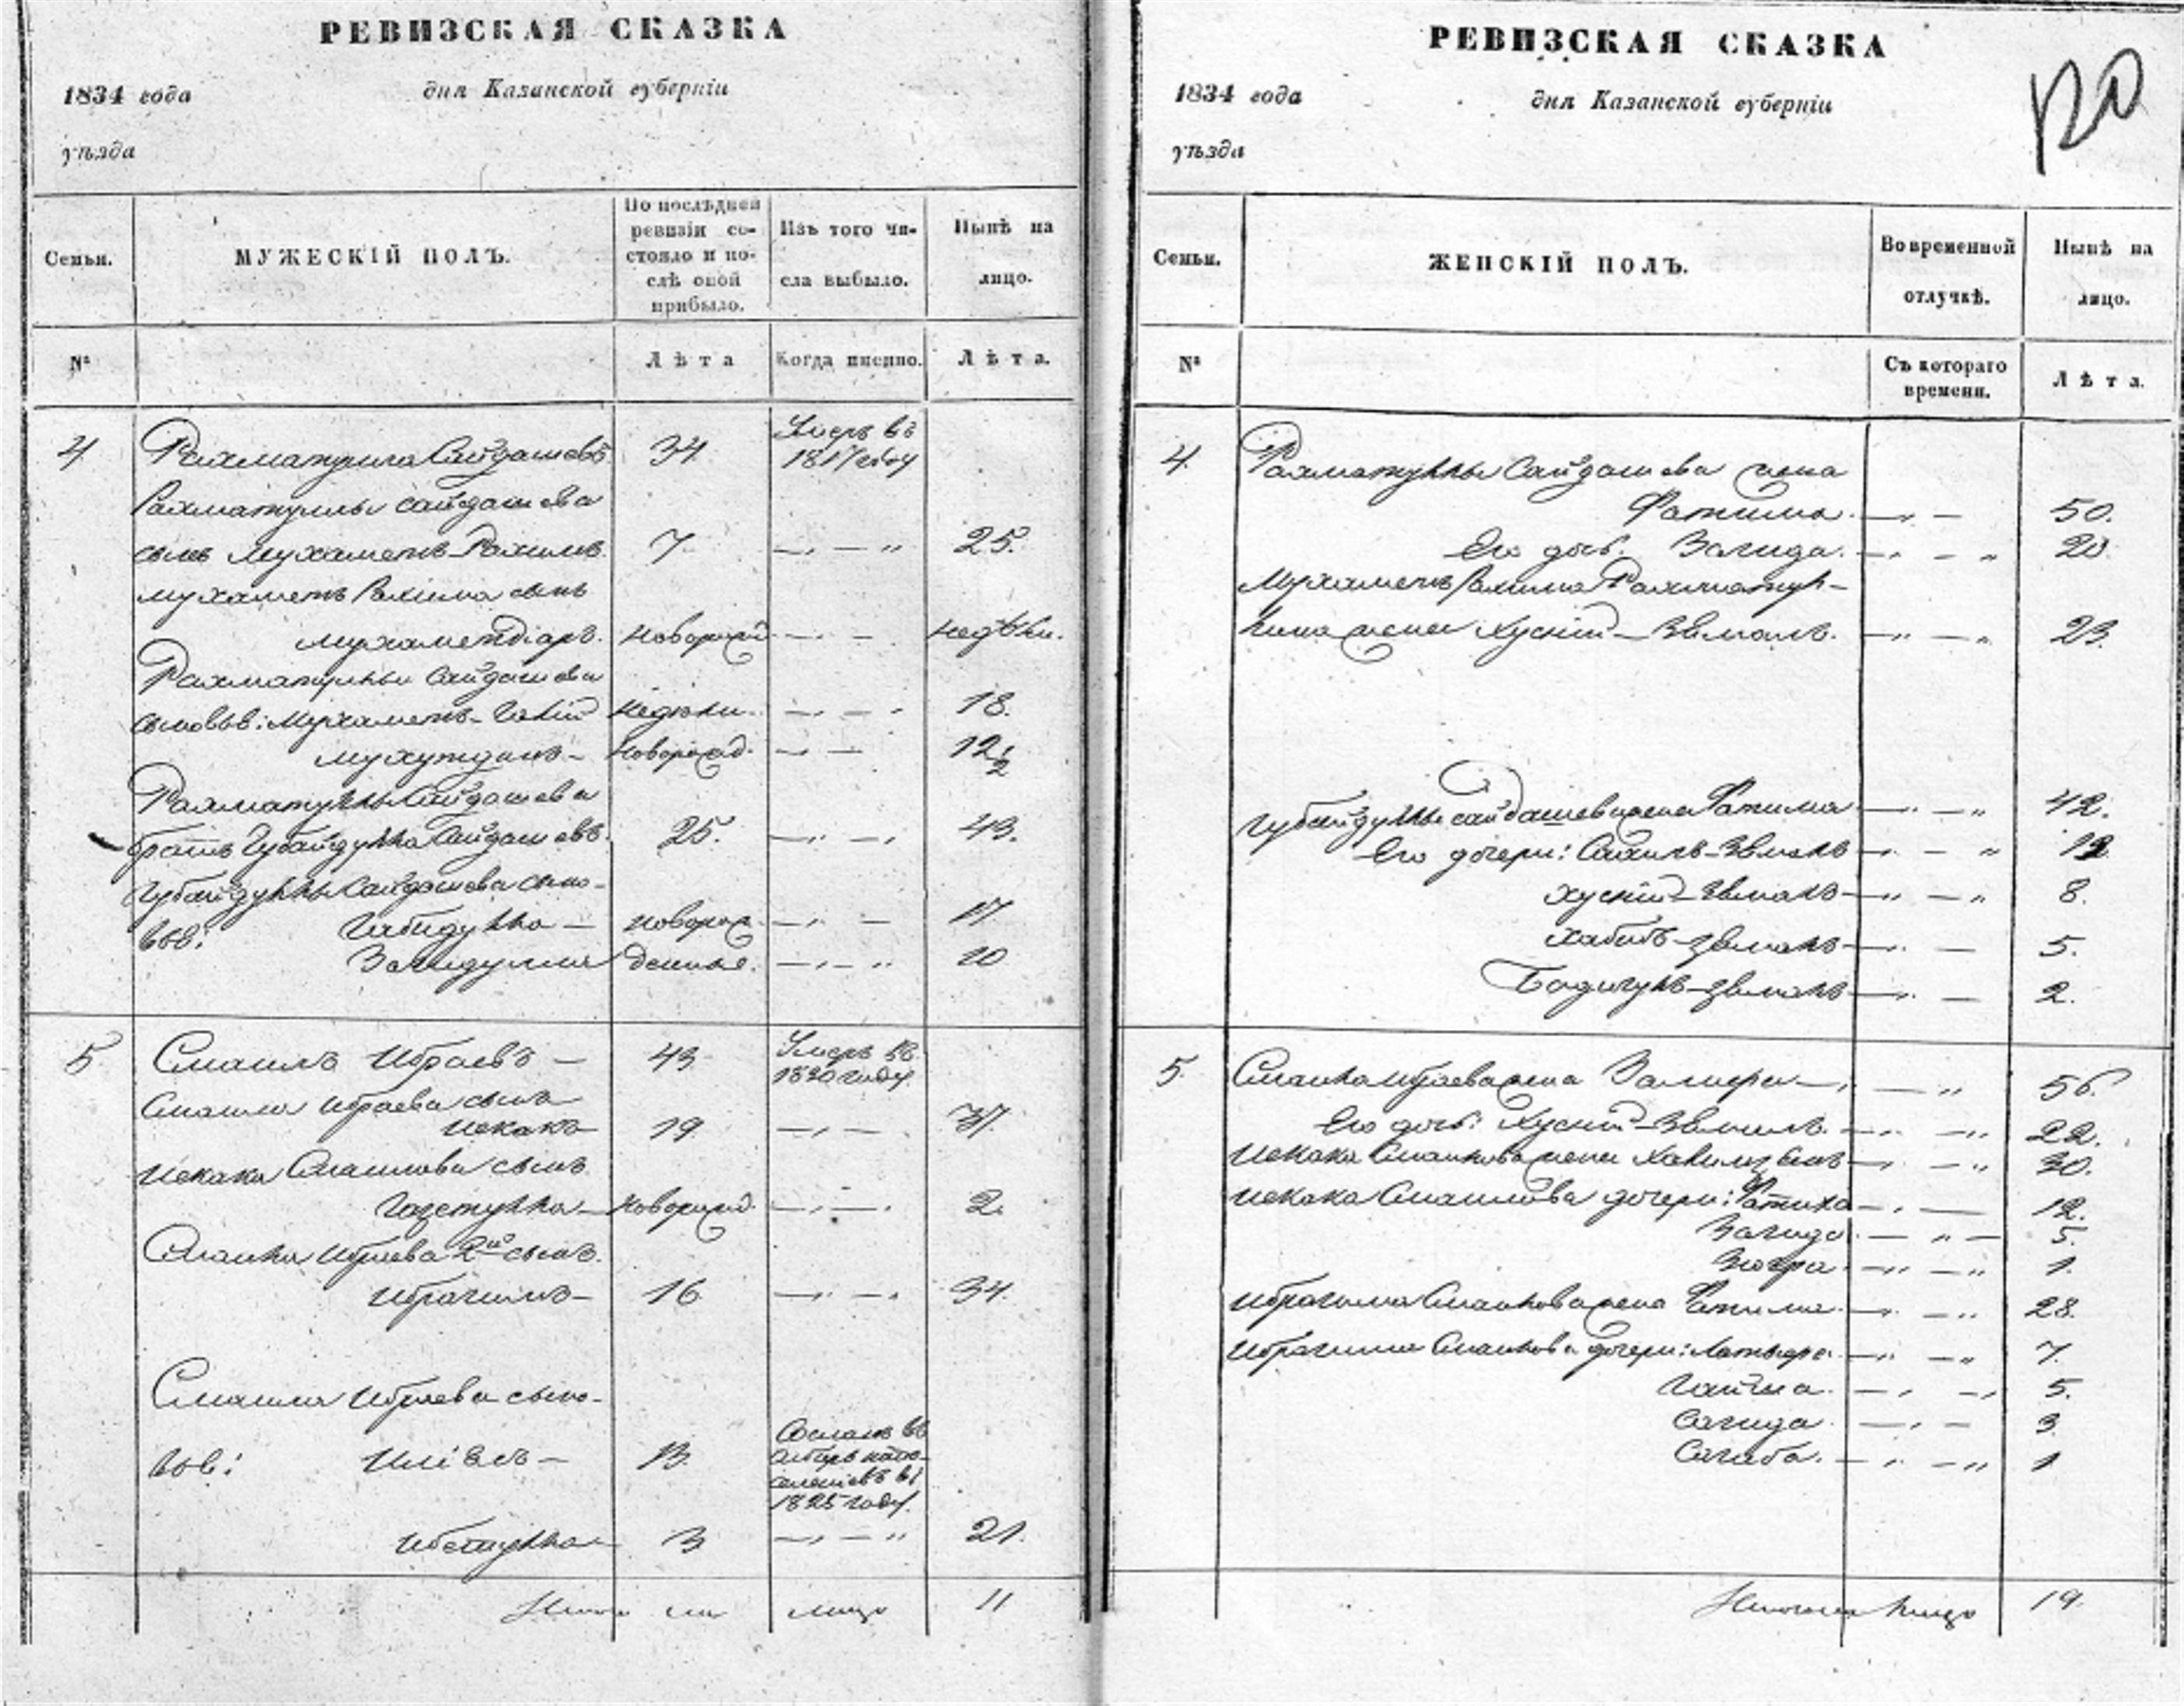 РЕВИЗСКАЯ СКАЗКА
1834 года дня Казанской губерніи
уѣзда
Семьи. МУЖЕСКІЙ ПОЛЪ. По послѣдней ревизіи состояло и послѣ оной прибыло. Изъ того числа выбыло. Нынѣ на лицо.
№ Лѣта Когда именно. Лѣта.
4 Рахматулла Сайдашевъ 34 Умеръ въ 1817 году
Рахматуллы Сайдашева
сынъ Мухаметъ-Рахимъ 7 25.
Мухаметъ Рахима сынъ
Мухамедіаръ. новорожд недѣли.
Рахматуллы Сайдашева
сыновья: Мухаметъ- недѣли 18.
новорожд. 12 1/2
Рахматуллы Сайдашева
братъ Губайдулла Сайдашевъ. 25. 43.
Губайдуллы Сайдашева сыно-
вья: Габидулла — новорож 17
Загидулла денные. 10
5 Смаилъ Ибраевъ — 43 Умеръ въ 1830 году
Смаила Ибраева сынъ
Исхакъ 19 37.
Исхака Смаилова сынъ
новорожд. 2.
Смаила Ибраева 2й сынъ
Ибрагимъ — 16 34.
Смаила Ибраева сыно-
вья: 13. Сосланъ въ
Сибирь на по-
селеніе въ
1825 году.
3 21.
Итого на лицо 11
РЕВИЗСКАЯ СКАЗКА
120
1834 года дня Казанской губерніи
уѣзда
Семьи. ЖЕНСКІЙ ПОЛЪ. Во временной отлучкѣ. Нынѣ на лицо.
№ Съ котораго времени. Лѣта.
4. Рахматуллы Сайдашева жена
Фатима. 50.
Его дочь. Загида. 20.
Мухаметъ Рахима Рахматул-
лина жена Хусни-Зямалъ. 23.
Губайдуллы Сайдашева жена Фатима 42.
Его дочери: 12
Хусни-Зямалъ 8.
Хабибъ-Зямалъ 5.
Бадигулъ-Зямалъ 2.
5. Смаила Ибраева жена 56.
Его дочь: Хусни-Зямилъ. 22.
Исхака Смаилова жена 30.
Исхака Смаилова дочери: Фатиха 12.
Загида 5.
Зюгра 1.
Ибрагима Смаилова жена Фатима 28.
Ибрагима Смаилова дочери: 7.
5.
Сагида 3
Сагаба. 1
Итого на лицо 19.